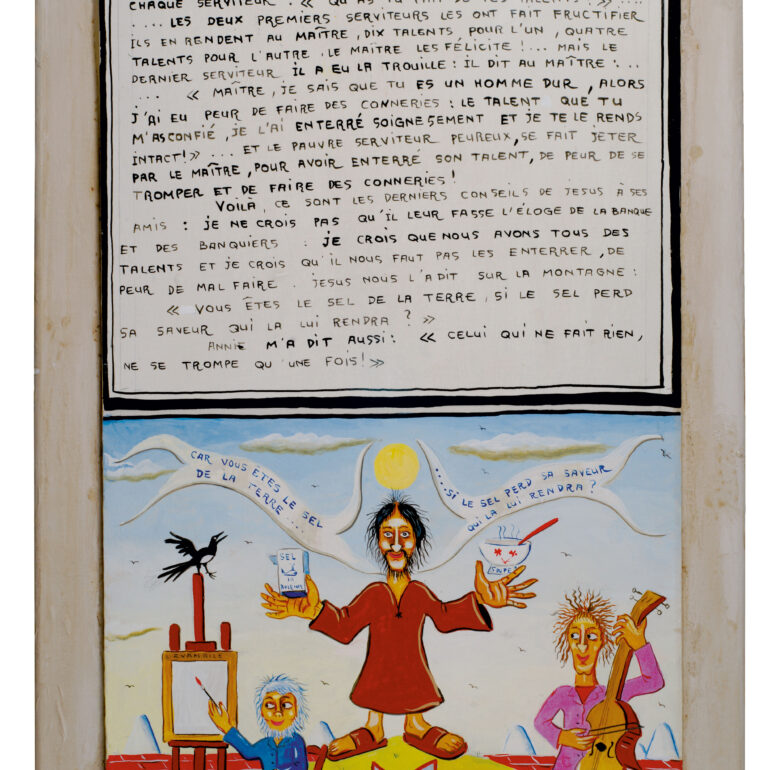 CHAQUE SERVITEUR : « QU'AS TU FAIT DE TES TALENTS ? ...»
.... LES DEUX PREMIERS SERVITEURS LES ONT FAIT FRUCTIFIER
ILS EN RENDENT AU MAÎTRE, DIX TALENTS POUR L'UN, QUATRE
TALENTS POUR L'AUTRE. LE MAÎTRE LES FÉLICITE !... MAIS LE
DERNIER SERVITEUR IL A EU LA TROUILLE : IL DIT AU MAÎTRE : ...
... « MAÎTRE, JE SAIS QUE TU ES UN HOMME DUR, ALORS
J'AI EU PEUR DE FAIRE DES CONNERIES : LE TALENT QUE TU
M'AS CONFIÉ, JE L'AI ENTERRÉ SOIGNESEMENT ET JE TE LE RENDS
INTACT! » ... ET LE PAUVRE SERVITEUR PEUREUX, SE FAIT JETER
PAR LE MAÎTRE, POUR AVOIR ENTERRÉ SON TALENT, DE PEUR DE SE
TROMPER ET DE FAIRE DES CONNERIES !
VOILÀ, CE SONT LES DERNIERS CONSEILS DE JESUS À SES
AMIS : JE NE CROIS PAS QU'IL LEUR FASSE L'ÉLOGE DE LA BANQUE
ET DES BANQUIERS : JE CROIS QUE NOUS AVONS TOUS DES
TALENTS ET JE CROIS QU'IL NOUS FAUT PAS LES ENTERRER, DE
PEUR DE MAL FAIRE. JESUS NOUS L'A DIT SUR LA MONTAGNE :
« VOUS ÊTES LE SEL DE LA TERRE, SI LE SEL PERD
SA SAVEUR QUI LA LUI RENDRA ? »
ANNIE M'A DIT AUSSI : « CELUI QUI NE FAIT RIEN,
NE SE TROMPE QU'UNE FOIS! »
CAR VOUS ETES LE SEL
DE LA TERRE ...
....SI LE SEL PERD SA SAVEUR
QUI LA LUI RENDRA ?
SEL
SOUPE
EVANGILE